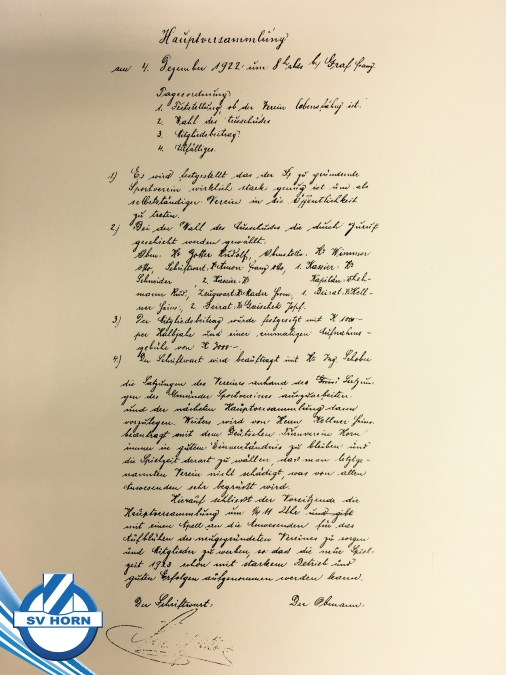 Hauptversammlung
am 4. Dezember 1922 um 8 h abds b/ Graf Franz.
Tagesordnung:
1. Feststellung, ob der Verein lebensfähig ist.
2. Wahl des Ausschußes
3. Mitgliedsbeitrag.
4. Allfälliges.
1) Es wird festgestellt das der zu gründende
Sportverein wirklich stark genug ist um als
selbstständiger Verein in die Öffentlichkeit
zu treten.
2.) Bei der Wahl des Ausschußes die durch Zuruf
geschieht werden gewählt.
Obm. Hr Gotter Rudolf, Obmstellv. Hr Wimmer
Otto, Schriftwart: Hr Franz Otto, 1. Kassier: Hr
Schneider 2. Kassier: Hr Kapitän:
mann Rud, Zeugwart: Hr Mader 1. Beirat: Hr Kell-
ner Heinr, 2. Beirat: Hr Josef.
3) Der Mitgliedsbeitrag würde festgesetzt mit K 1000-
per Halbjahr und einer einmaligen Aufnahms-
gebühr von K 3000-
4.) Der Schriftwart wird beauftragt mit Hr Ing Schober
die Satzungen des Vereines anhand des Satzun-
gen des Gmünder Sportvereines auszuarbeiten
und der nächsten Hauptversammlung dann
vorzulegen. Weiters wird von Herrn Kellner Heinr
beantragt mit dem Deutschen Turnverein Horn
immer in gutten Einverständnis zu bleiben und
die Spielzeit derart zu wählen das man letztge-
nannten Verein nicht schädigt, was von allen
Anwesenden sehr begrüsst wird.
Hierauf schliesst der Vorsitzende die
Hauptversammlung um 3/4 11 Uhr und gibt
mit einen Apell an die Anwesenden für das
Aufblühen des neugegründeten Vereines zu sorgen
und Mitglieder zu werben, so das die neue Spiel-
zeit 1923 schon mit starkem Betrieb und
guten Erfolgen aufgenommen werden kann.
Der Schriftwart: Der Obmann:
SV HORN